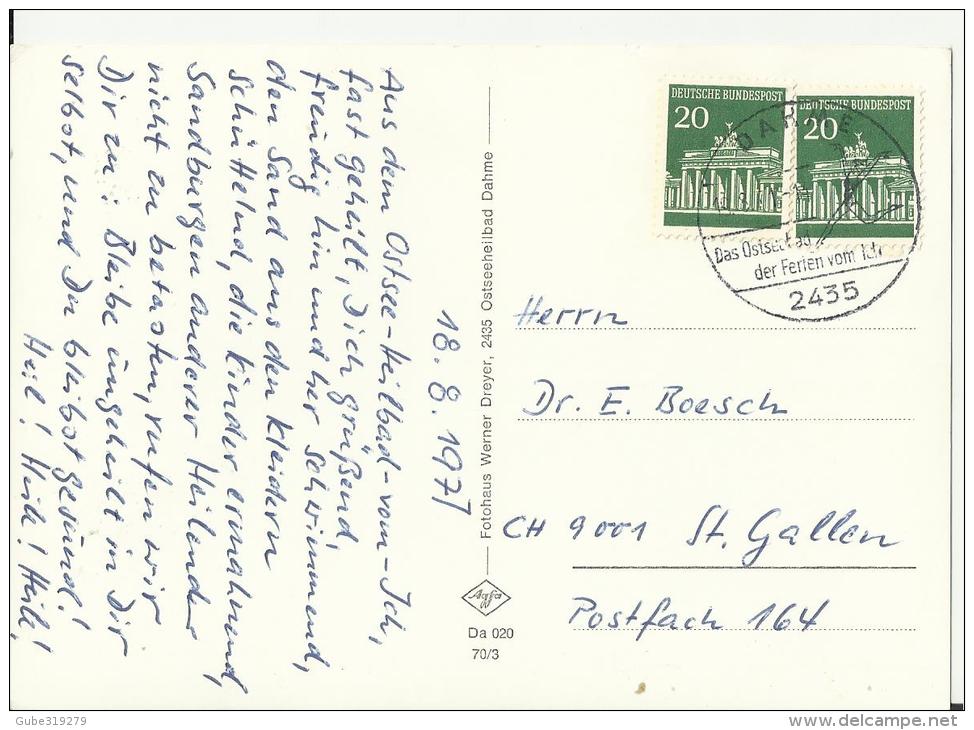 Aus dem Ostsee-Heilbad-vom-Ich,
fast geheilt, Dich grüßend,
freudig hin und her schwimmend,
den Sand aus den Kleidern
schüttelnd, die Kinder ermahnend,
Sandburgen anderer Heilender
nicht zu betasten, rufen wir
Dir zu: Bleibe ungeheilt in Dir
selbst, und Du bleibst gesund!
Heil! Heil! Heil!
18.8.1971
Fotohaus Werner Dreyer, 2435 Ostseeheilbad Dahme
Agfa
Da 020
70/3
DEUTSCHE BUNDESPOST
20
DEUTSCHE BUNDESPOST
20
DAHME
Das Ostseebad
der Ferien vom Ich
2435
Herrn
Dr. E. Boesch
CH 9001 St. Gallen
Postfach 164
Gube319279
www.delcampe.net